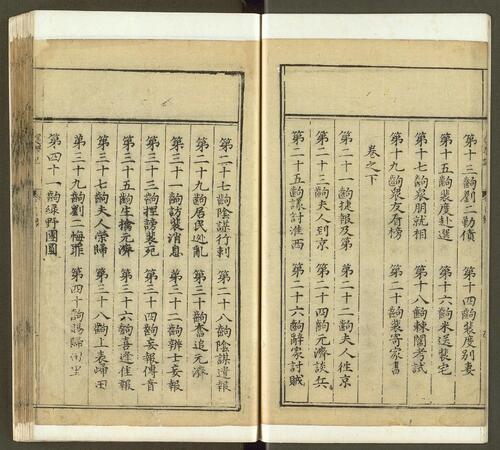 第十三齣劉二勒債 第十四齣裴度別妻
第十五齣裴度赴選 第十六齣米送裴宅
第十七齣衆朋就相 第十八齣棘闈考試
第十九齣衆友看榜 第二十齣裴寄家書
卷之下
第二十一齣捷報及第 第二十二齣夫人徃京
第二十三齣夫人到京 第二十四齣元濟談兵
第二十五齣謀討淮西 第二十六齣辭家討賊
第二十七齣陰謀行刺 第二十八齣陰謀遺報
第二十九齣居民迯亂 第三十齣奮追元濟
第三十一齣訪裴消息 第三十二齣辨士妄報
第三十三齣捏謗裴苑 第三十四齣妄報傳音
第三十五齣生擒元濟 第三十六齣喜逢佳報
第三十七齣夫人榮歸 第三十八齣上表歸田
第三十九齣劉二悔罪 第四十齣賜歸田里
第四十一齣綠野團圓